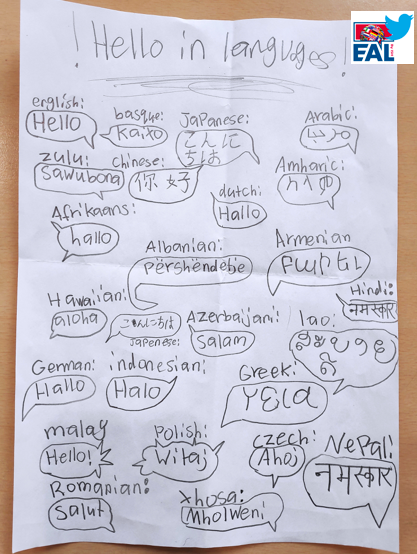 EAL
! Hello in languages !
english:
Hello
basque:
Kaixo
Japanese:
こんに
ちは
Arabic:
zulu:
Sawubona
chinese:
你好
dutch:
Hallo
Amharic:
ሰላም
Afrikaans:
hallo
Albanian:
Përshëndetje
Armenian
Բարեւ
Hawaiian:
aloha
こんにちは
Japenese:
Azerbaijani:
Salam
Hindi:
नमस्कार
lao:
German:
Hallo
indonesian:
Halo
Greek:
γεια
malay
Hello!
Polish:
Witaj
czech:
Ahoj
Nepali:
नमस्कार
Romanian:
Salut
xhosa:
Mholweni